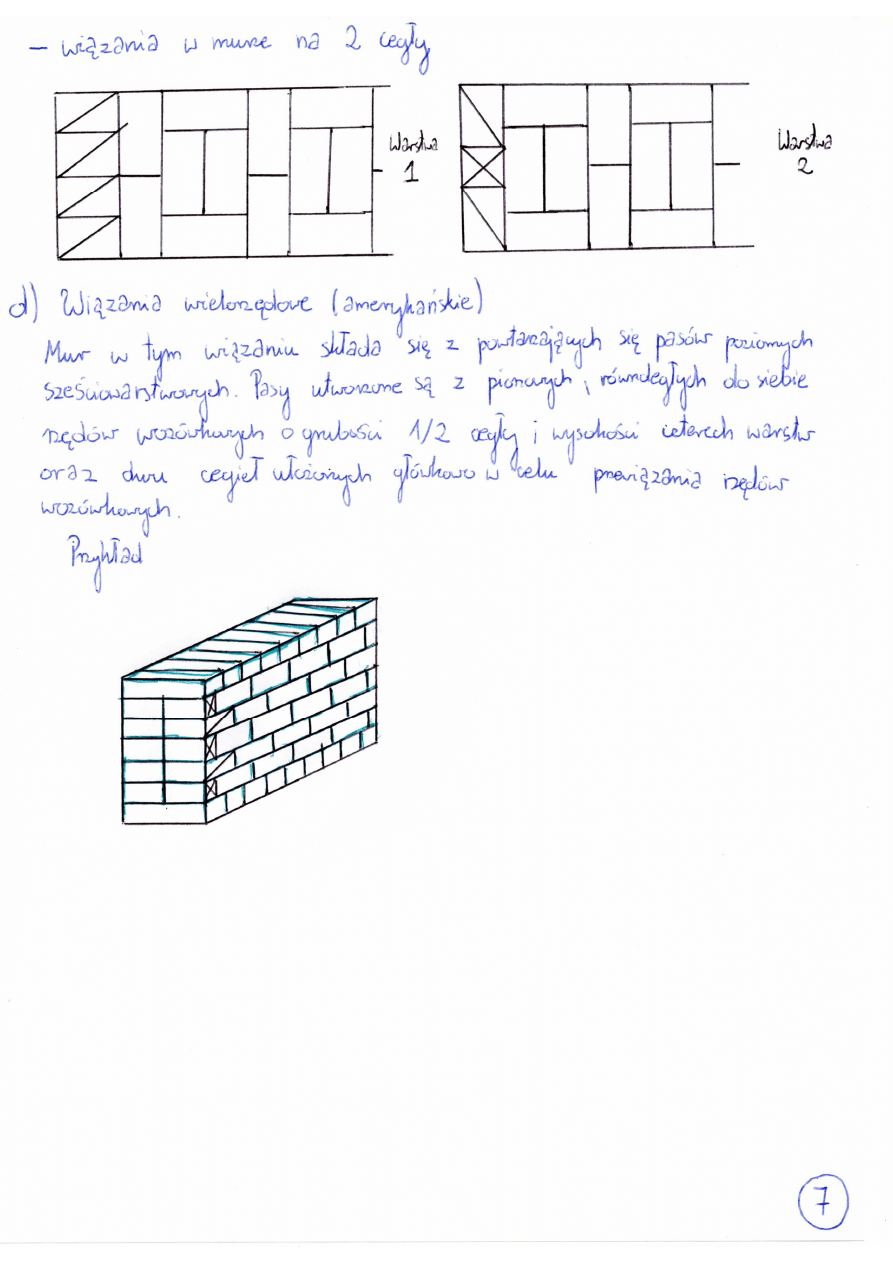 - wiązania w murze na 2 cegły
Warstwa
1
Warstwa
2
d) Wiązania wielorzędowe (amerykańskie)
Mur w tym wiązaniu składa się z powtarzających się pasów poziomych
sześciowarstwowych. Pasy utworzone są z pionowych, równoległych do siebie
rzędów wozówkowych o grubości 1/2 cegły i wysokości czterech warstw
oraz dwu cegieł ułożonych główkowo w celu przewiązania rzędów
wozówkowych.
Przykład
7